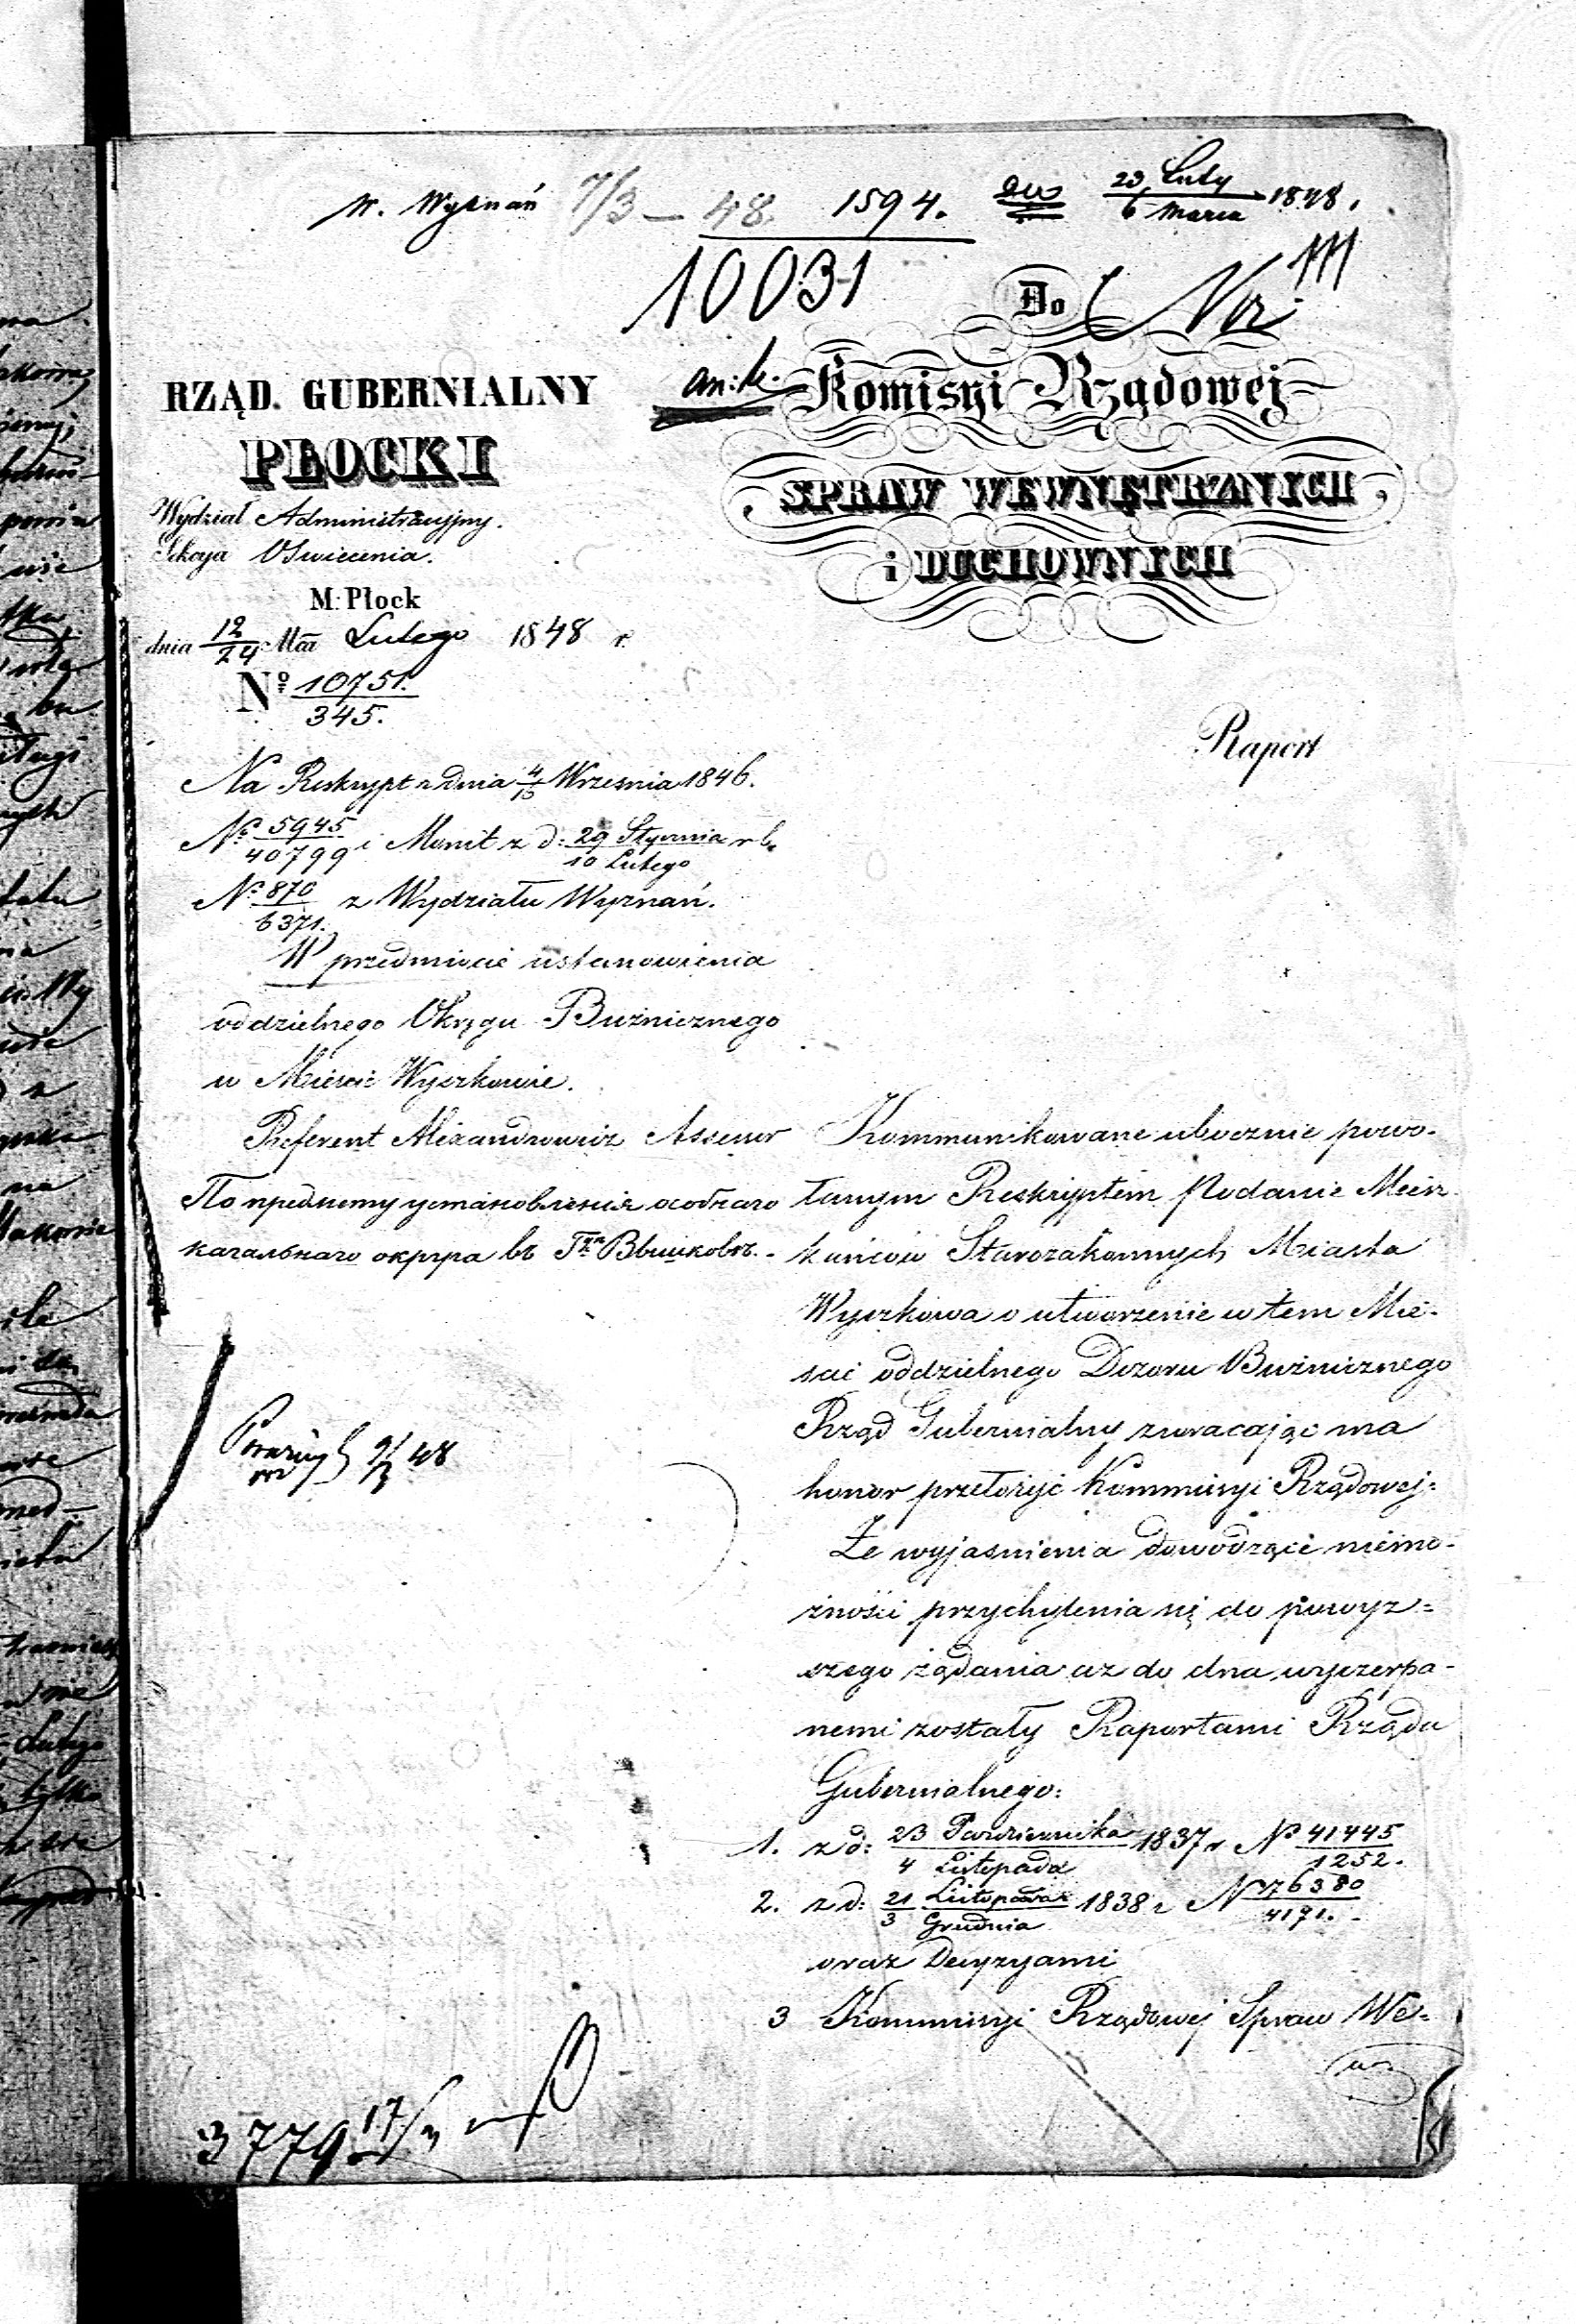 W. Wyznań 7/3 – 48. 1594. 23 Luty / 6 Marca 1848.
10031
Do
Komisyi Rządowej
SPRAW WEWNĘTRZNYCH
i DUCHOWNYCH
RZĄD GUBERNIALNY
PŁOCKI
Wydział Administracyjny.
Sekcya Oświecenia.
M: Płock
dnia 12/24 Mca Lutego 1848 r.
Nº 10751. / 345.
Raport
Na Reskrypt z dnia Września 1846.
Nº 5945 / 40799 i Monit z d: 29 Stycznia / 10 Lutego r b.
Nº 870 / 6371. z Wydziału Wyznań.
W przedmiocie ustanowienia
oddzielnego Okręgu Bużnicznego
w Mieście Wyszkowie.
Referent Alexandrowicz Assesor
По предмету установления особаго
кагальнаго округа въ Вышковѣ.
48
Kommunikowane ubocznie powo-
łanym Reskryptem Podanie Miesz-
kańców Starozakonnych Miasta
Wyszkowa o utworzenie w tem Mie-
scie oddzielnego Dozoru Bużnicznego
Rząd Gubernialny zwracając ma
honor przełożyć Kommisyi Rządowej:
Że wyjasnienia dowodzące niemo-
żności przychylenia się do powyż=
szego żądania aż do dna wyczerpa-
nemi zostały Raportami Rządu
Gubernialnego:
1. z d: 23 Pazdziernika / 4 Listopada 1837 r Nº 41445 / 1252.
2. z d: 21 Listopada / 3 Grudnia 1838 r Nº 76380 / 4171.
oraz Decyzyami
3 Kommisyi Rządowej Spraw We=
3779 17/3